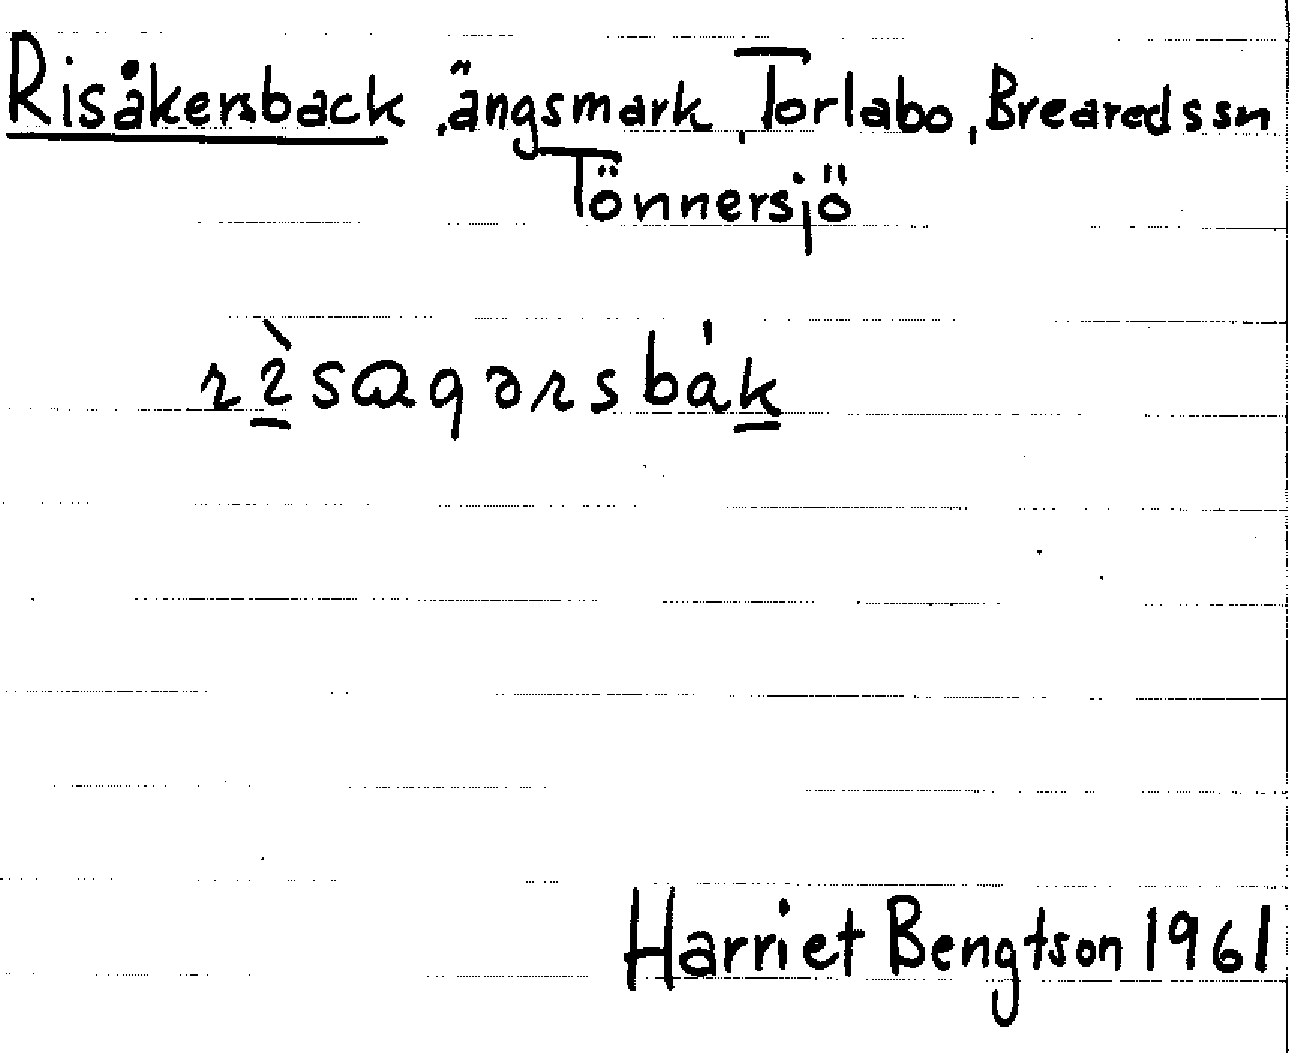 Risåkersback, ängsmark, Torlabo, Brearedssn
Tönnersjö
Harriet Bengtson 1961